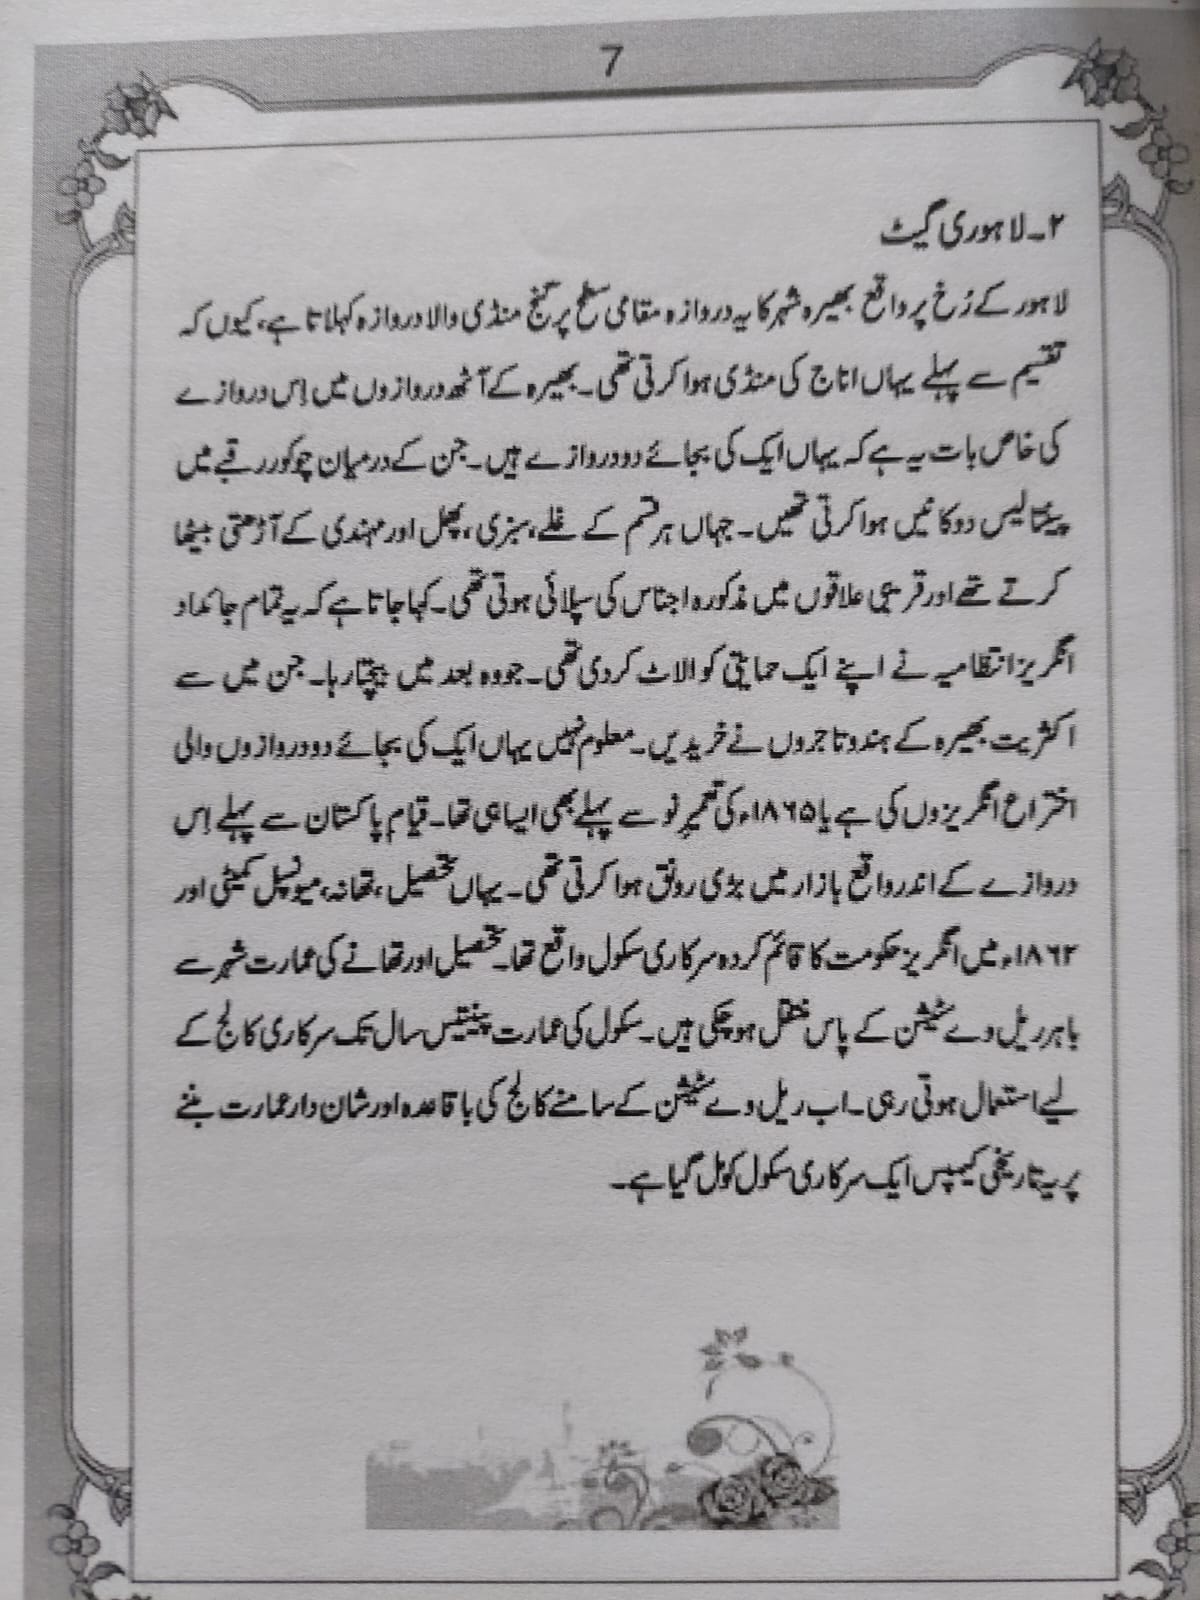 7
۲۔ لاہوری گیٹ
لاہور کے رُخ پر واقع بھیرہ شہر کا یہ دروازہ مقامی سطح پر گنج منڈی والا دروازہ کہلاتا ہے، کیوں کہ
تقسیم سے پہلے یہاں اناج کی منڈی ہوا کرتی تھی۔ بھیرہ کے آٹھ دروازوں میں اِس دروازے
کی خاص بات یہ ہے کہ یہاں ایک کی بجائے دو دروازے ہیں۔ جن کے درمیان چوکور رقبے میں
پینتالیس دوکانیں ہوا کرتی تھیں۔ جہاں ہر قسم کے غلے، سبزی، پھل اور مہندی کے آڑھتی بیٹھا
کرتے تھے اور قریبی علاقوں میں مذکورہ اجناس کی سپلائی ہوتی تھی۔ کہا جاتا ہے کہ یہ تمام جائداد
انگریز انتظامیہ نے اپنے ایک حمایتی کو الاٹ کر دی تھی۔ جو وہ بعد میں بیچتا رہا۔ جن میں سے
اکثریت بھیرہ کے ہندو تاجروں نے خریدیں۔ معلوم نہیں یہاں ایک کی بجائے دو دروازوں والی
اختراع انگریزوں کی ہے یا ۱۸۶۵ء کی تعمیرِ نو سے پہلے بھی ایسا ہی تھا۔ قیامِ پاکستان سے پہلے اِس
دروازے کے اندر واقع بازار میں بڑی رونق ہوا کرتی تھی۔ یہاں تحصیل، تھانہ، میونسپل کمیٹی اور
۱۸۶۲ء میں انگریز حکومت کا قائم کردہ سرکاری سکول واقع تھا۔ تحصیل اور تھانے کی عمارت شہر سے
باہر ریل وے سٹیشن کے پاس منتقل ہو چکی ہیں۔ سکول کی عمارت پینتیس سال تک سرکاری کالج کے
لیے استعمال ہوتی رہی۔ اب ریل وے سٹیشن کے سامنے کالج کی باقاعدہ اور شان دار عمارت بننے
پر یہ تاریخی کیمپس ایک سرکاری سکول کو مل گیا ہے۔